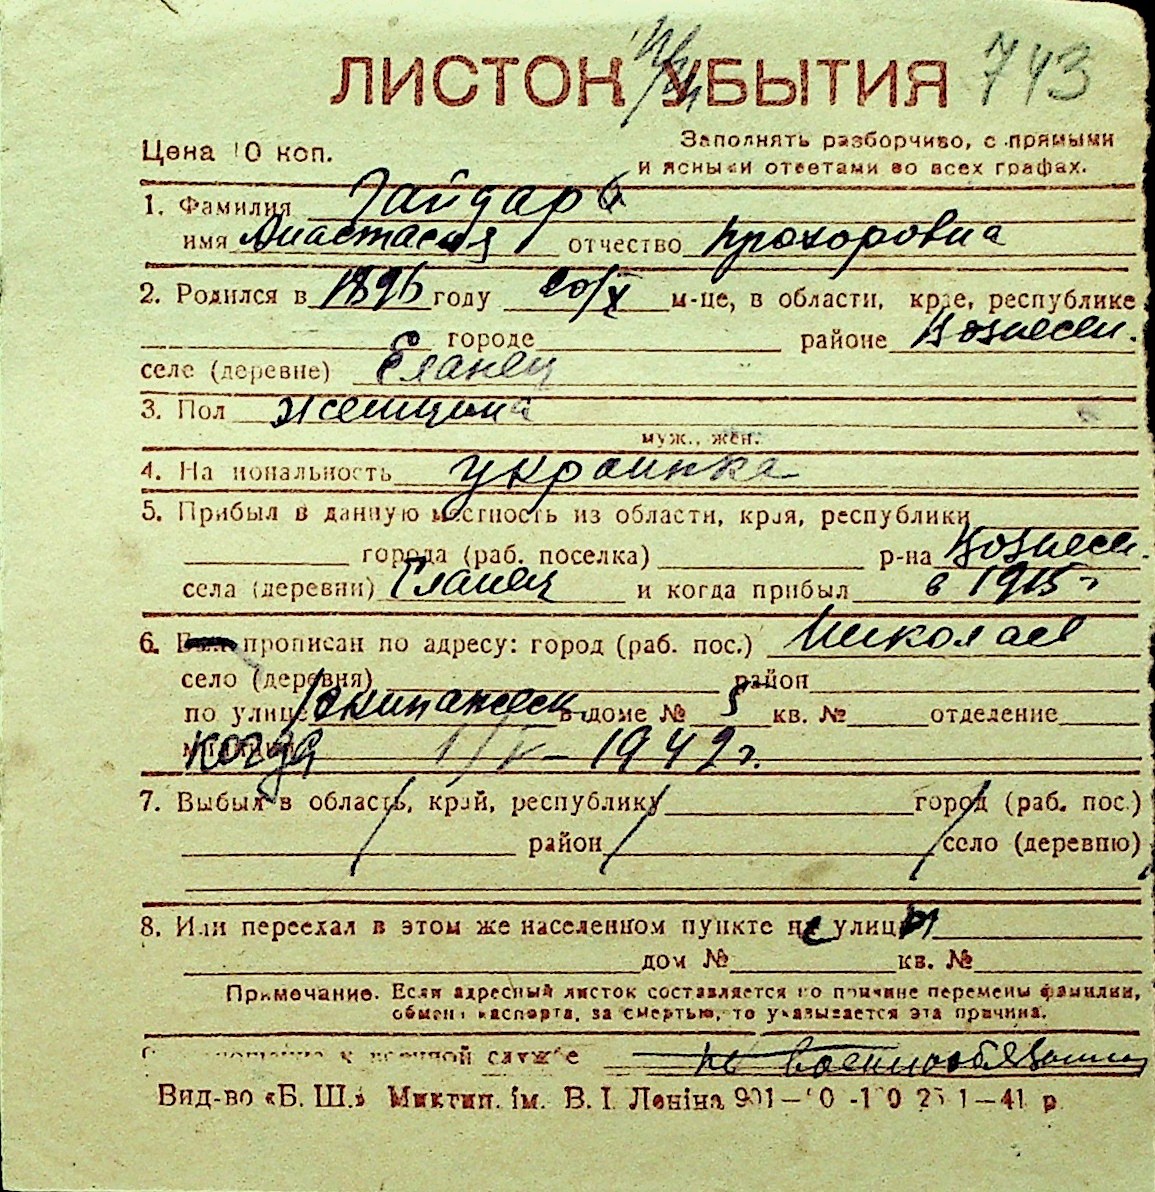 ЛИСТОК УБЫТИЯ 743
Цена 10 коп.
Заполнять разборчиво, с прямыми
и ясными ответами во всех графах.
1. Фамилия Гайдара
имя Анастасия отчество Прохоровна
2. Родился в 1896 году 20/X м-це, в области, крае, республике
городе районе Вознесен.
селе (деревне) Еланец
3. Пол женщина
муж., жен.
4. Национальность украинка
5. Прибыл в данную местность из области, края, республики
города (раб. поселка) р-на Вознесен.
села (деревни) Еланец и когда прибыл в 1915 г
6. прописан по адресу: город (раб. пос.) Николаев
село (деревня) район
по улице Экипажеск. в доме № 5 кв. № отделение
когда 1/V – 1942 г.
7. Выбыл в область, край, республику город (раб. пос.)
район село (деревню)
8. Или переехал в этом же населенном пункте не улицы
дом № кв. №
Примечание. Если адресный листок составляется по причине перемены фамилии,
обмена паспорта, за смертью, то указывается эта причина.
к военной службе не военнообязанный
Вид-во «Б. Ш.» Миктип. ім. В. І. Леніна 901— 1—41 р.